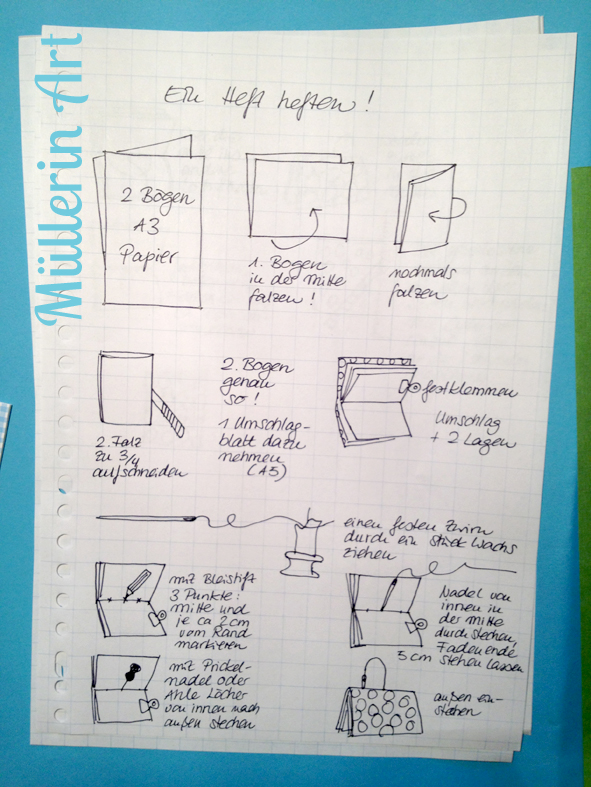 Müllerin Art
Ein Heft heften!
2 Bögen
A3
Papier
1. Bogen
in der Mitte
falzen!
nochmals
falzen
2. Falz
zu 3/4
aufschneiden
2. Bogen
genau
so!
1 Umschlag-
blatt dazu
nehmen
(A5)
festklemmen
Umschlag
+ 2 Lagen
einen festen Zwirn
durch ein Stück Wachs
ziehen
mit Bleistift
3 Punkte:
Mitte und
je ca 2cm
vom Rand
markieren
Nadel von
innen in
der Mitte
durchstechen,
Fadenende
5cm stehen lassen
mit Prickel-
nadel oder
Ahle Löcher
von innen nach
außen stechen
außen ein-
stechen